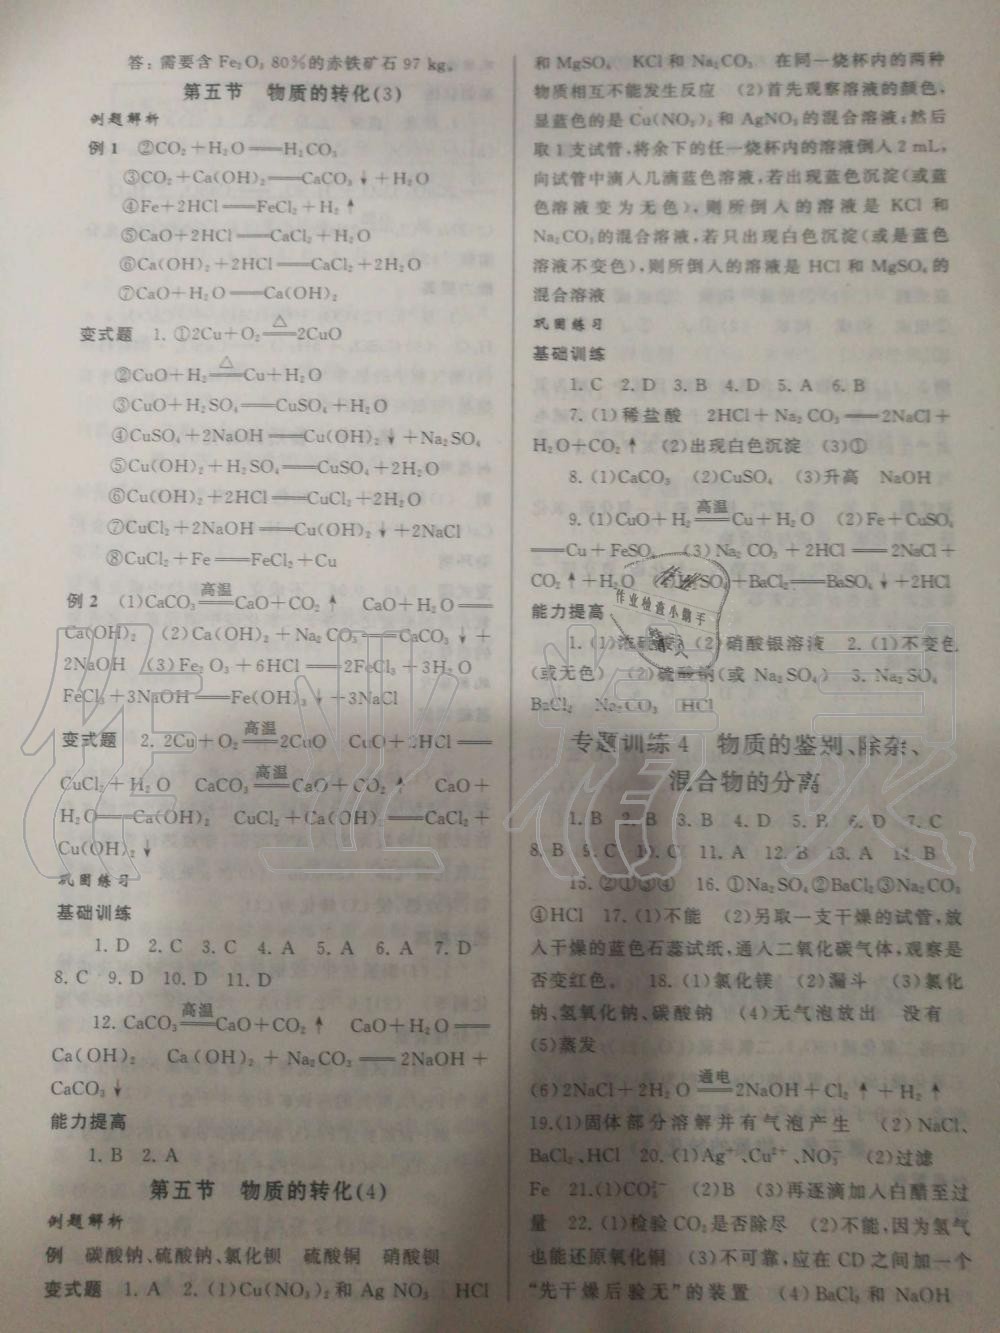 答:需要含Fe₂O₃ 80%的赤铁矿石97 kg。
第五节 物质的转化(3)
例题解析
例1 ②CO₂+H₂O══H₂CO₃
③CO₂+Ca(OH)₂══CaCO₃↓+H₂O
④Fe+2HCl══FeCl₂+H₂↑
⑤CaO+2HCl══CaCl₂+H₂O
⑥Ca(OH)₂+2HCl══CaCl₂+2H₂O
⑦CaO+H₂O══Ca(OH)₂
△
变式题 1.①2Cu+O₂══2CuO
△
②CuO+H₂══Cu+H₂O
③CuO+H₂SO₄══CuSO₄+H₂O
④CuSO₄+2NaOH══Cu(OH)₂↓+Na₂SO₄
⑤Cu(OH)₂+H₂SO₄══CuSO₄+2H₂O
⑥Cu(OH)₂+2HCl══CuCl₂+2H₂O
⑦CuCl₂+2NaOH══Cu(OH)₂↓+2NaCl
⑧CuCl₂+Fe══FeCl₂+Cu
高温
例2 (1)CaCO₃══CaO+CO₂↑ CaO+H₂O══
Ca(OH)₂ (2)Ca(OH)₂+Na₂CO₃══CaCO₃↓+
2NaOH (3)Fe₂O₃+6HCl══2FeCl₃+3H₂O
FeCl₃+3NaOH══Fe(OH)₃↓+3NaCl
高温
变式题 2.2Cu+O₂══2CuO CuO+2HCl══
高温
CuCl₂+H₂O CaCO₃══CaO+CO₂↑ CaO+
H₂O══Ca(OH)₂ CuCl₂+Ca(OH)₂══CaCl₂+
Cu(OH)₂↓
巩固练习
基础训练
1.D 2.C 3.C 4.A 5.A 6.A 7.D
8.C 9.D 10.D 11.D
高温
12.CaCO₃══CaO+CO₂↑ CaO+H₂O══
Ca(OH)₂ Ca(OH)₂+Na₂CO₃══2NaOH+
CaCO₃↓
能力提高
1.B 2.A
第五节 物质的转化(4)
例题解析
例 碳酸钠、硫酸钠、氯化钡 硫酸铜 硝酸钡
变式题 1.A 2.(1)Cu(NO₃)₂和AgNO₃ HCl
和MgSO₄ KCl和Na₂CO₃ 在同一烧杯内的两种
物质相互不能发生反应 (2)首先观察溶液的颜色,
显蓝色的是Cu(NO₃)₂和AgNO₃的混合溶液;然后
取1支试管,将余下的任一烧杯内的溶液倒入2 mL,
向试管中滴入几滴蓝色溶液,若出现蓝色沉淀(或蓝
色溶液变为无色),则所倒入的溶液是KCl和
Na₂CO₃的混合溶液,若只出现白色沉淀(或是蓝色
溶液不变色),则所倒入的溶液是HCl和MgSO₄的
混合溶液
巩固练习
基础训练
1.C 2.D 3.B 4.D 5.A 6.B
7.(1)稀盐酸 2HCl+Na₂CO₃══2NaCl+
H₂O+CO₂↑ (2)出现白色沉淀 (3)①
8.(1)CaCO₃ (2)CuSO₄ (3)升高 NaOH
高温
9.(1)CuO+H₂══Cu+H₂O (2)Fe+CuSO₄
══Cu+FeSO₄ (3)Na₂CO₃+2HCl══2NaCl+
CO₂↑+H₂O SO₄+BaCl₂══BaSO₄↓+2HCl
能力提高
1.(1)浓硫酸 (2)硝酸银溶液 2.(1)不变色
(或无色) (2)硫酸钠(或Na₂SO₄) 3.Na₂SO₄
BaCl₂ Na₂CO₃ HCl
专题训练4 物质的鉴别、除杂、
混合物的分离
1.B 2.B 3.B 4.D 5.B 6.D 7.C
8.B 9.C 10.C 11.A 12.B 13.A 14.B
15.②①③④ 16.①Na₂SO₄②BaCl₂③Na₂CO₃
④HCl 17.(1)不能 (2)另取一支干燥的试管,放
入干燥的蓝色石蕊试纸,通入二氧化碳气体,观察是
否变红色。 18.(1)氯化镁 (2)漏斗 (3)氯化
钠、氢氧化钠、碳酸钠 (4)无气泡放出 没有
(5)蒸发
通电
(6)2NaCl+2H₂O══2NaOH+Cl₂↑+H₂↑
19.(1)固体部分溶解并有气泡产生 (2)NaCl、
BaCl₂、HCl 20.(1)Ag⁺、Cu²⁺、NO₃⁻ (2)过滤
Fe 21.(1)CO₃²⁻ (2)B (3)再逐滴加入白醋至过
量 22.(1)检验CO₂是否除尽 (2)不能,因为氢气
也能还原氧化铜 (3)不可靠,应在CD之间加一个
“先干燥后验无”的装置 (4)BaCl₂和NaOH
作业检查小助手
作业精灵